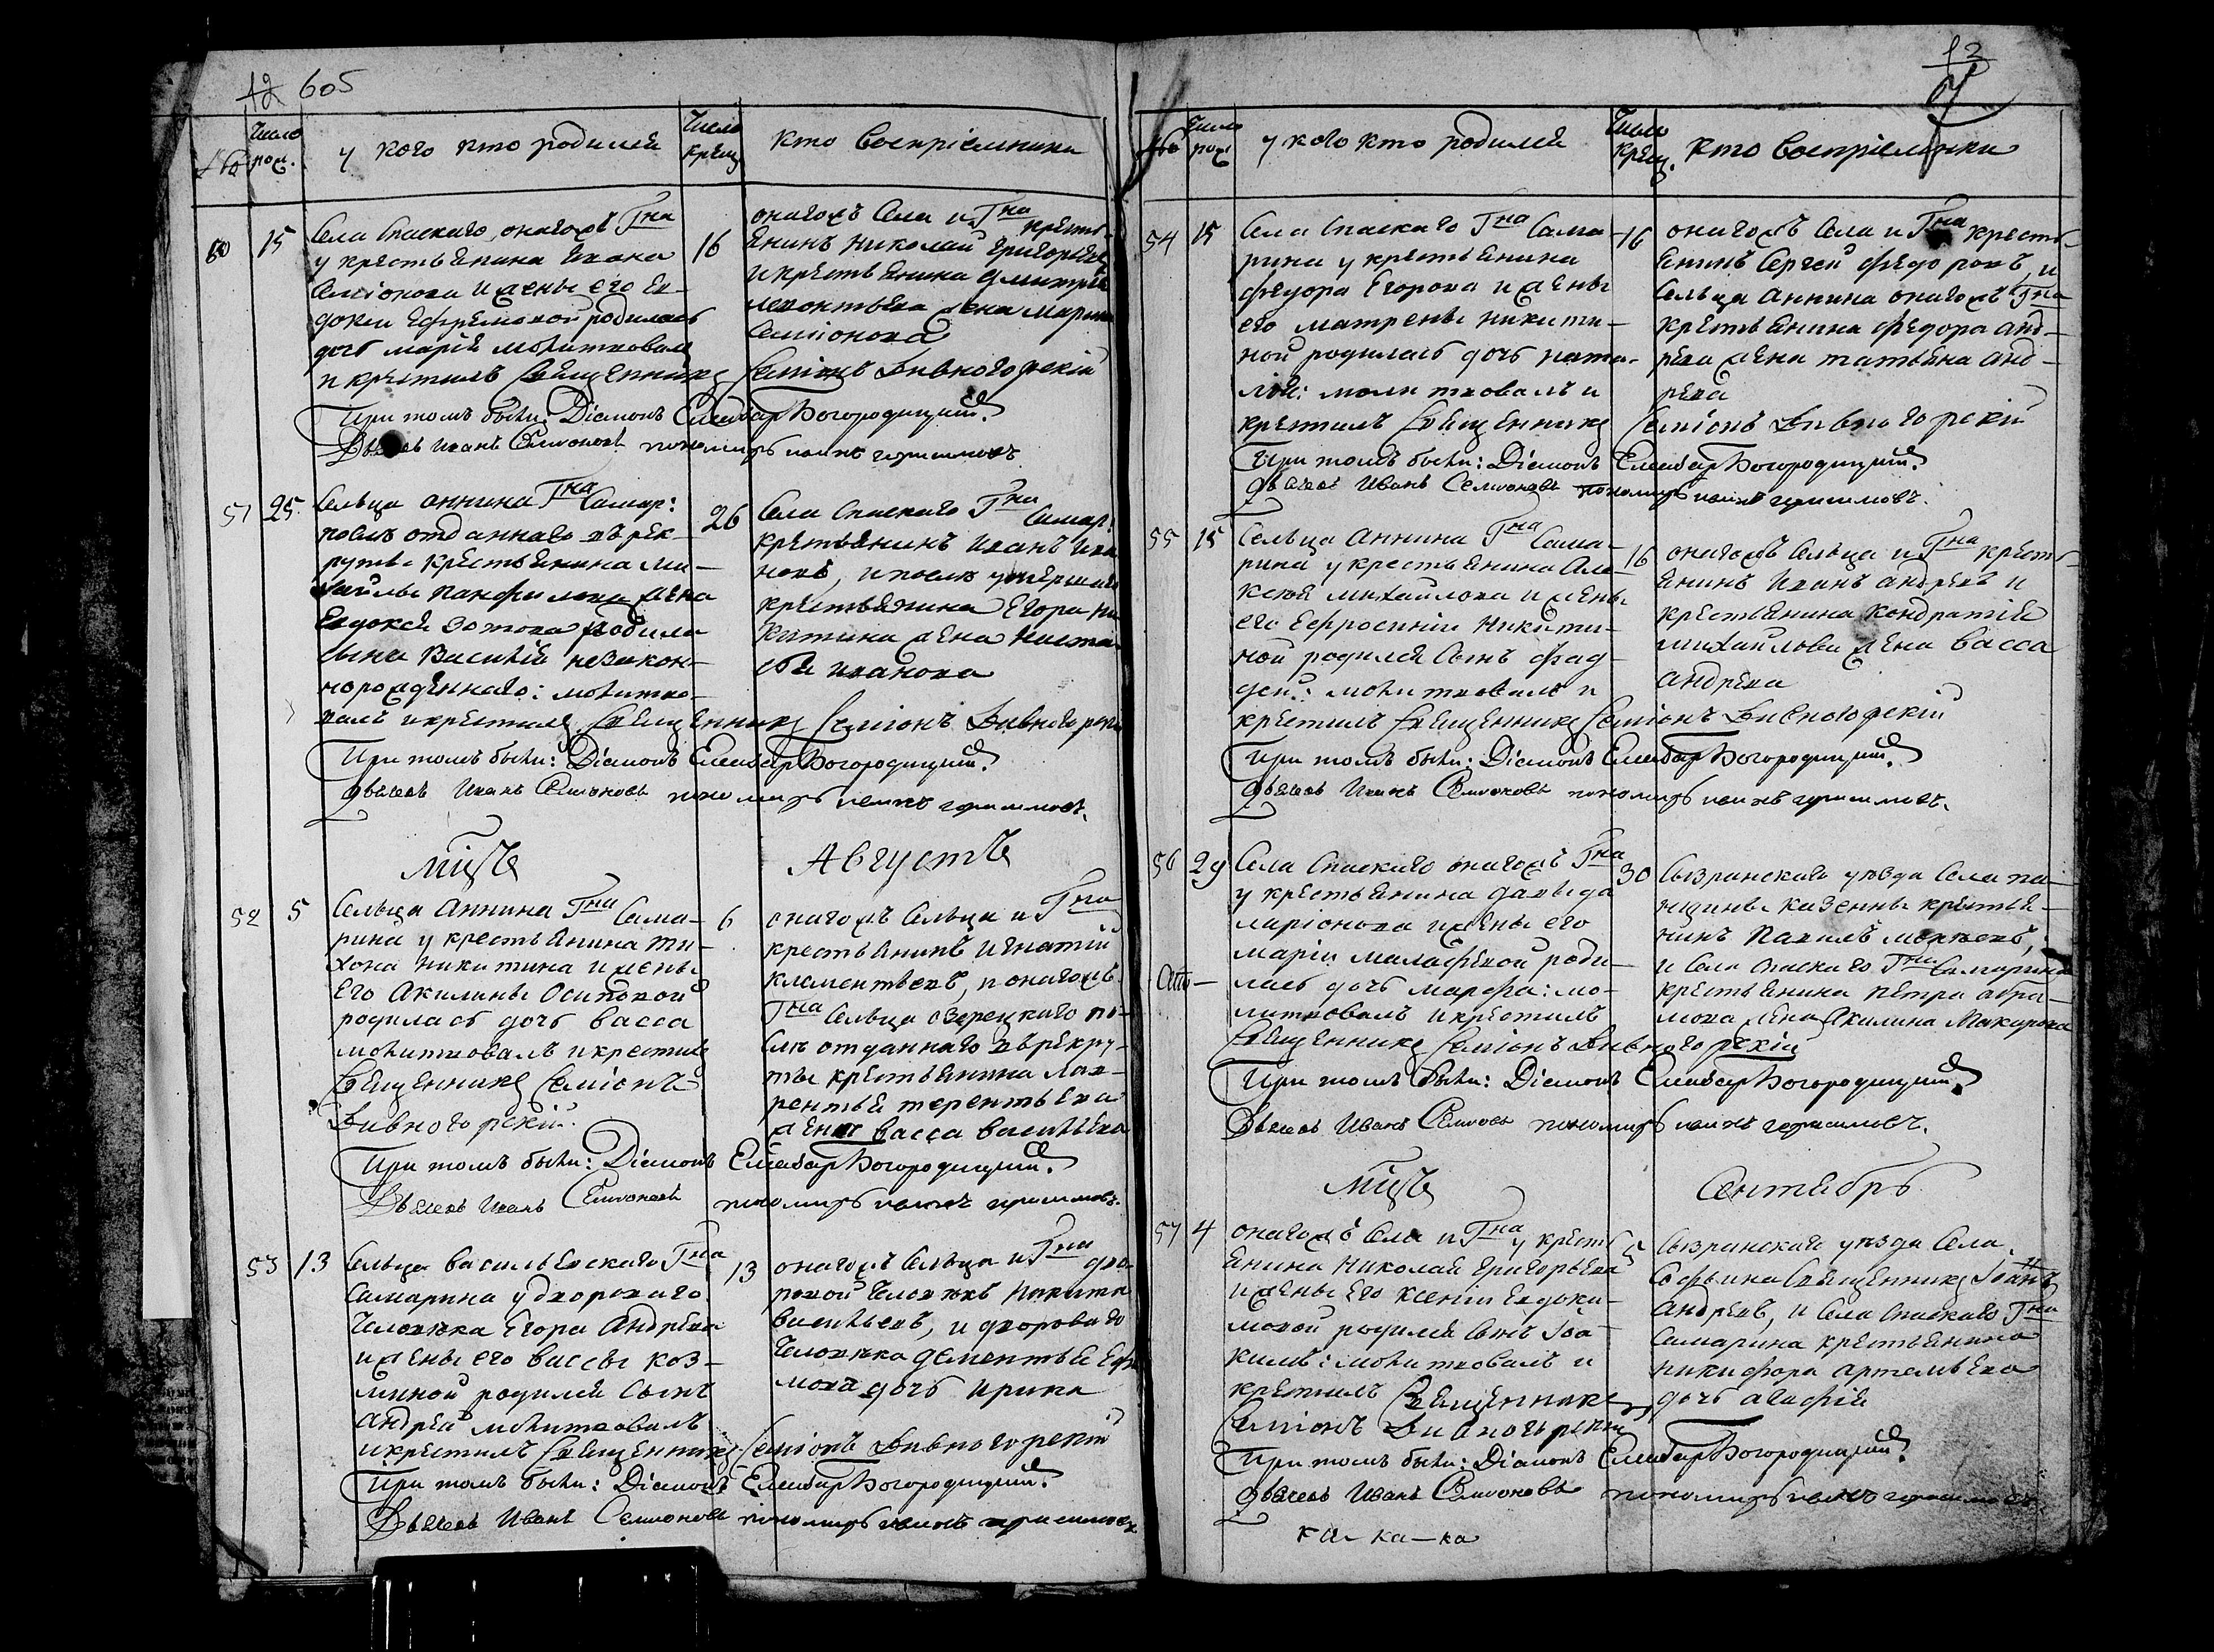 12 605
№
Число рож.
у кого кто родился
Число крещ.
кто воспріемники
50 15
Села Спаскаго, онагожъ Гна
у крестьянина Ивана
Семіонова и жены его Ев-
докіи Ефремовой родилась
дочь марія молитвовалъ
и крестилъ Священникъ Семіонъ Дивногорскій
16
онагожъ Села и Гна кресть-
янинъ Николай Григорьевъ
и крестьянина Дмитрія
леонтьева жена марина
Семіонова
При томъ были: Діаконъ Богородицкій
Дьячекъ Иванъ Семионовъ пономарь
51 25
Сельца аннина Гна Самар:
послѣ отданнаго въ рек-
руты крестьянина Ми-
хайлы Панфилова жена
Евдокся Зотова родила
сына Василія незакон-
норожденнаго: молитво-
валъ и крестилъ Священникъ Семіонъ Дивногорскій
26
Села Спаскаго Гна Самар:
крестьянинъ Иванъ Ива-
новъ, и послѣ умершаго
крестьянина Егора Ни-
китина жена Наста-
сья иванова
При томъ были: Діаконъ Богородицкій
дьячекъ Иванъ Семионовъ пономарь
мцъ Августъ
52 5
Сельца Аннина Гна Сама-
рина у крестьянина Ти-
хона Никитина и жены
его Акилины Осиповой
родилась дочь васса
молитвовалъ и крестилъ
Священникъ Семіонъ
Дивногорскій.
6
онагожъ Сельца и Гна
крестьянинъ Игнатій
клементьевъ, и онагожъ
Гна Сельца озерецкаго по-
слѣ отданнаго в рекру-
ты крестьянина Лав-
рентья терентьева
жена васса васильева
При томъ были: Діаконъ Богородицкій
Дьячекъ Иванъ Семионовъ пономарь
53 13
Сельца васильевскаго Гна
Самарина у двороваго
Человѣка Егора Андрѣева
и жены его вассы коз-
миной родился Сынъ
андрей молитвовалъ
и крестилъ Священникъ Семіонъ Дивногорскій
13
онагожъ Сельца и Гна дво-
ровой Человѣкъ Никита
васильевъ, и двороваго
Человѣка дементья Ефи-
мова дочь ирина
При томъ были: Діаконъ Богородицкій
Дьячекъ Иванъ Семионовъ пономарь
13
№
Число рож
у кого кто родился
Число крещ.
кто воспріемники
54 15
Села Спаскаго Гна Сама-
рина у крестьянина
федора Егорова и жены
его матрены никити-
ной родилась дочь ната-
лія: молитвовалъ и
крестилъ Священникъ Семіонъ Дивногорскій
16
онагожъ Села и Гна кресть-
янинъ Сергей федоровъ, и
Сельца аннина онагожъ Гна
крестьянина федора анд-
рѣва жена татьяна анд-
рѣва
При томъ были: Діаконъ Богородицкій
дьячекъ Иванъ Семионовъ пономарь
55 15
Сельца аннина Гна Сама-
рина у крестьянина Але-
ксѣя михайлова и жены
его Ефросиніи Никити-
ной родился Сынъ фад-
дей: молитвовалъ и
крестилъ Священникъ Семіонъ Дивногорскій
16
онагожъ Сельца и Гна кресть-
янинъ Иванъ андрѣвъ и
крестьянина кондратія
михайлова жена васса
андрѣва
При томъ были: Діаконъ Богородицкій
дьячекъ Иванъ Семионовъ пономарь
56 29
Села Спаскаго онагожъ Гна
у крестьянина давыда
ларіонова и жены его
маріи малафѣвой роди-
лась дочь марфа: мо-
литвовалъ и крестилъ
Священникъ Семіонъ Дивногорскій
30
Сызранскаго уѣзда Села па-
ньшины казенны крестья-
нинъ Павилъ
и Села Спаскаго Гна Самарина
крестьянина петра абра-
мова жена Акилина Макарова
При томъ были: Діаконъ Богородицкій
Дьячекъ Иванъ Семионовъ пономарь
мцъ Сентябрь
57 4
онагожъ Села и Гна у кресть-
янина Николая григорьева
и жены его ксеніи Евдоки-
мовой родился Сынъ Іоа-
кимъ: молитвовалъ и
крестилъ Священникъ
Семіонъ Дивногорскій
5
Сызранскаго уѣзда Села
Софьина Священникъ Іоаннъ
андрѣвъ, и Села Спаскаго Гна
Самарина крестьянина
никифора артемьева
дочь агафія
При томъ были: Діаконъ Богородицкій
дьячекъ Иванъ Семионовъ пономарь